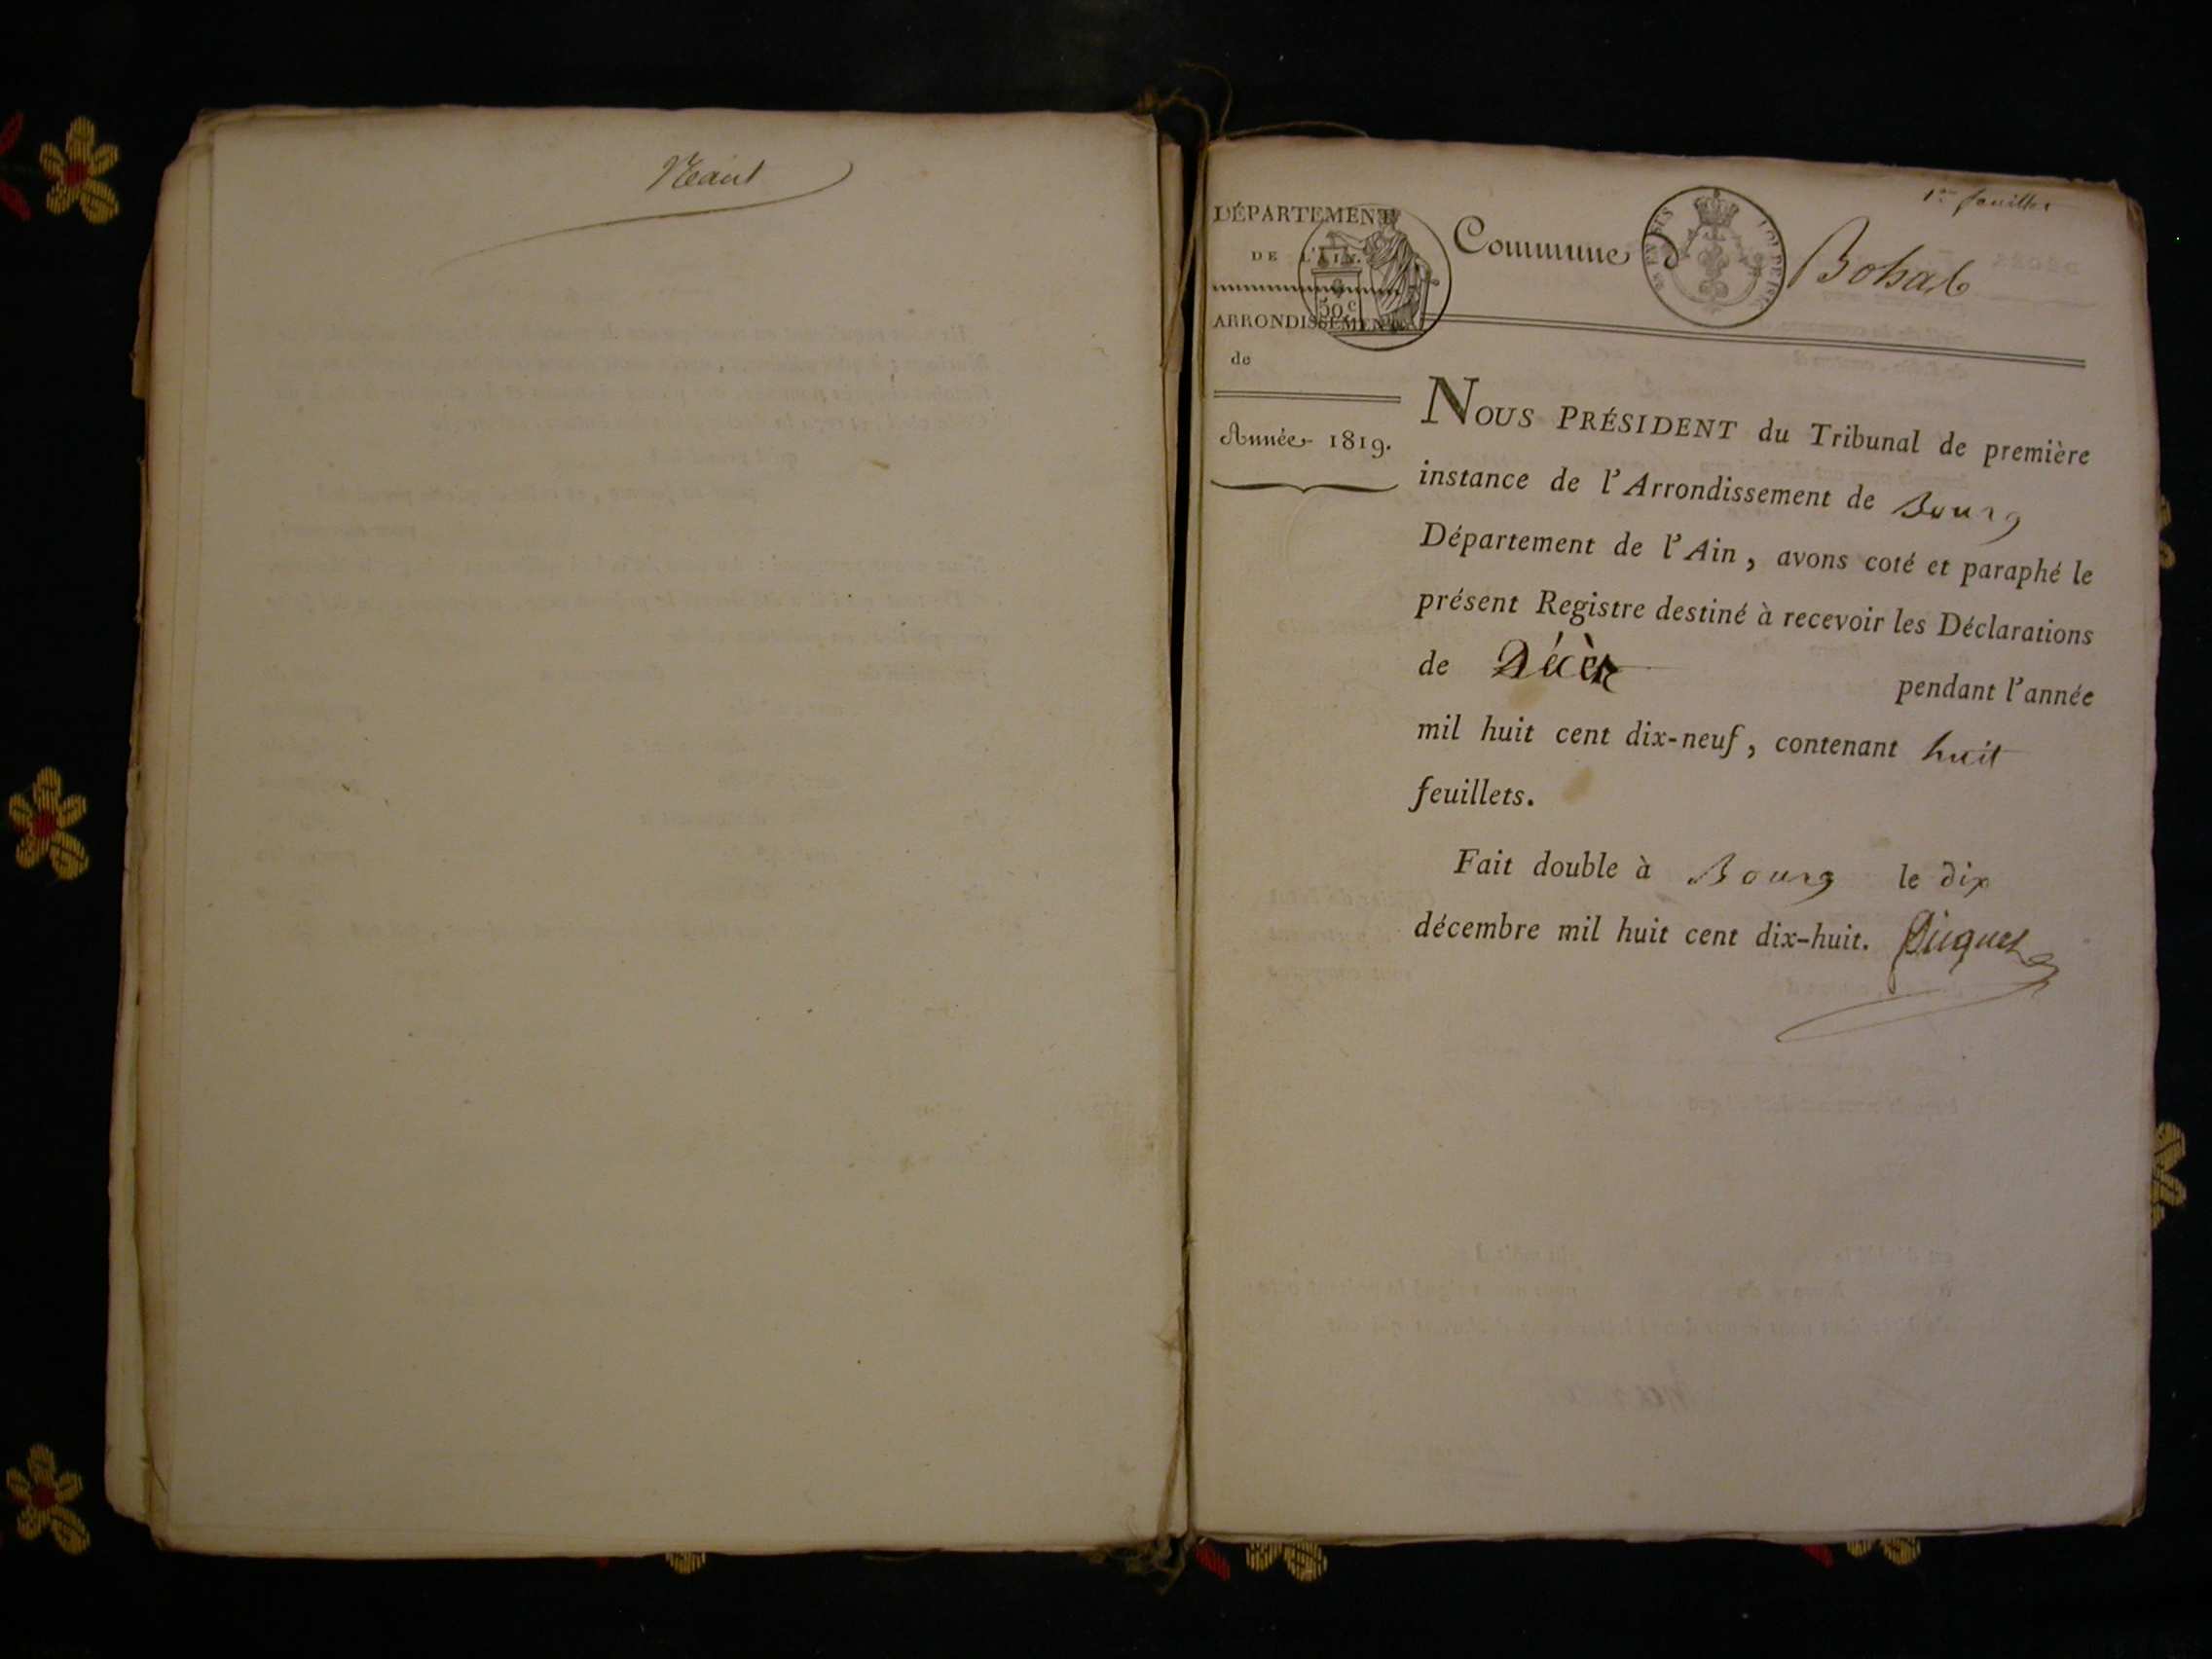 Néant
1er feuillet
DÉPARTEMENT
DE L'AIN.
ARRONDISSEMENT
de
Année 1819.
50 c
Commune d
Bohas
NOUS PRÉSIDENT du Tribunal de première
instance de l'Arrondissement de Bourg
Département de l'Ain, avons coté et paraphé le
présent Registre destiné à recevoir les Déclarations
de Décès pendant l'année
mil huit cent dix-neuf, contenant huit
feuillets.
Fait double à Bourg le dix
décembre mil huit cent dix-huit.